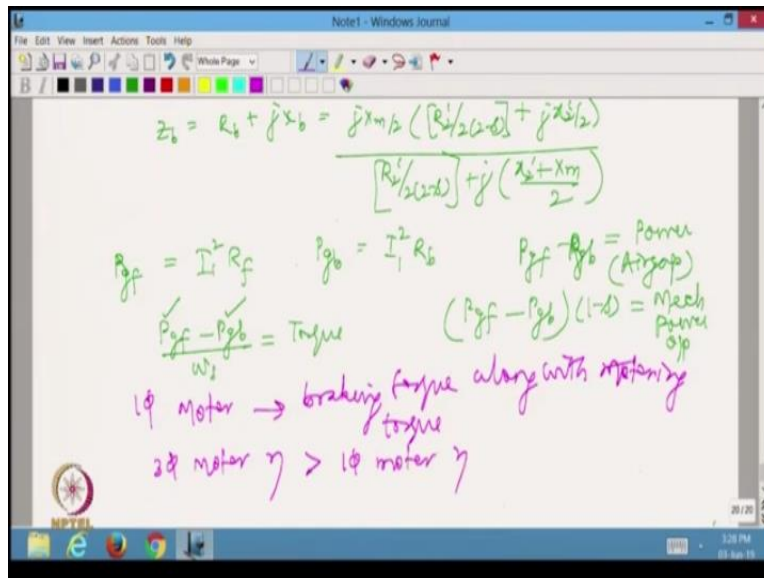 Note1 - Windows Journal
File Edit View Insert Actions Tools Help
Whole Page
B I
Z_b = R_b + jX_b = jXm/2 ([R2'/2(2-s)] + jX2'/2)
[R2'/2(2-s)] + j(X2'+Xm/2)
Pgf = I1² Rf Pgb = I1² Rb Pgf - Pgb = Power
(Airgap)
Pgf - Pgb / ωs = Torque (Pgf - Pgb)(1-s) = Mech
Power
o/p
1φ Motor → braking torque along with motoring
torque
3φ motor η > 1φ motor η
NPTEL
20/20
3:28 PM
03-Jun-19